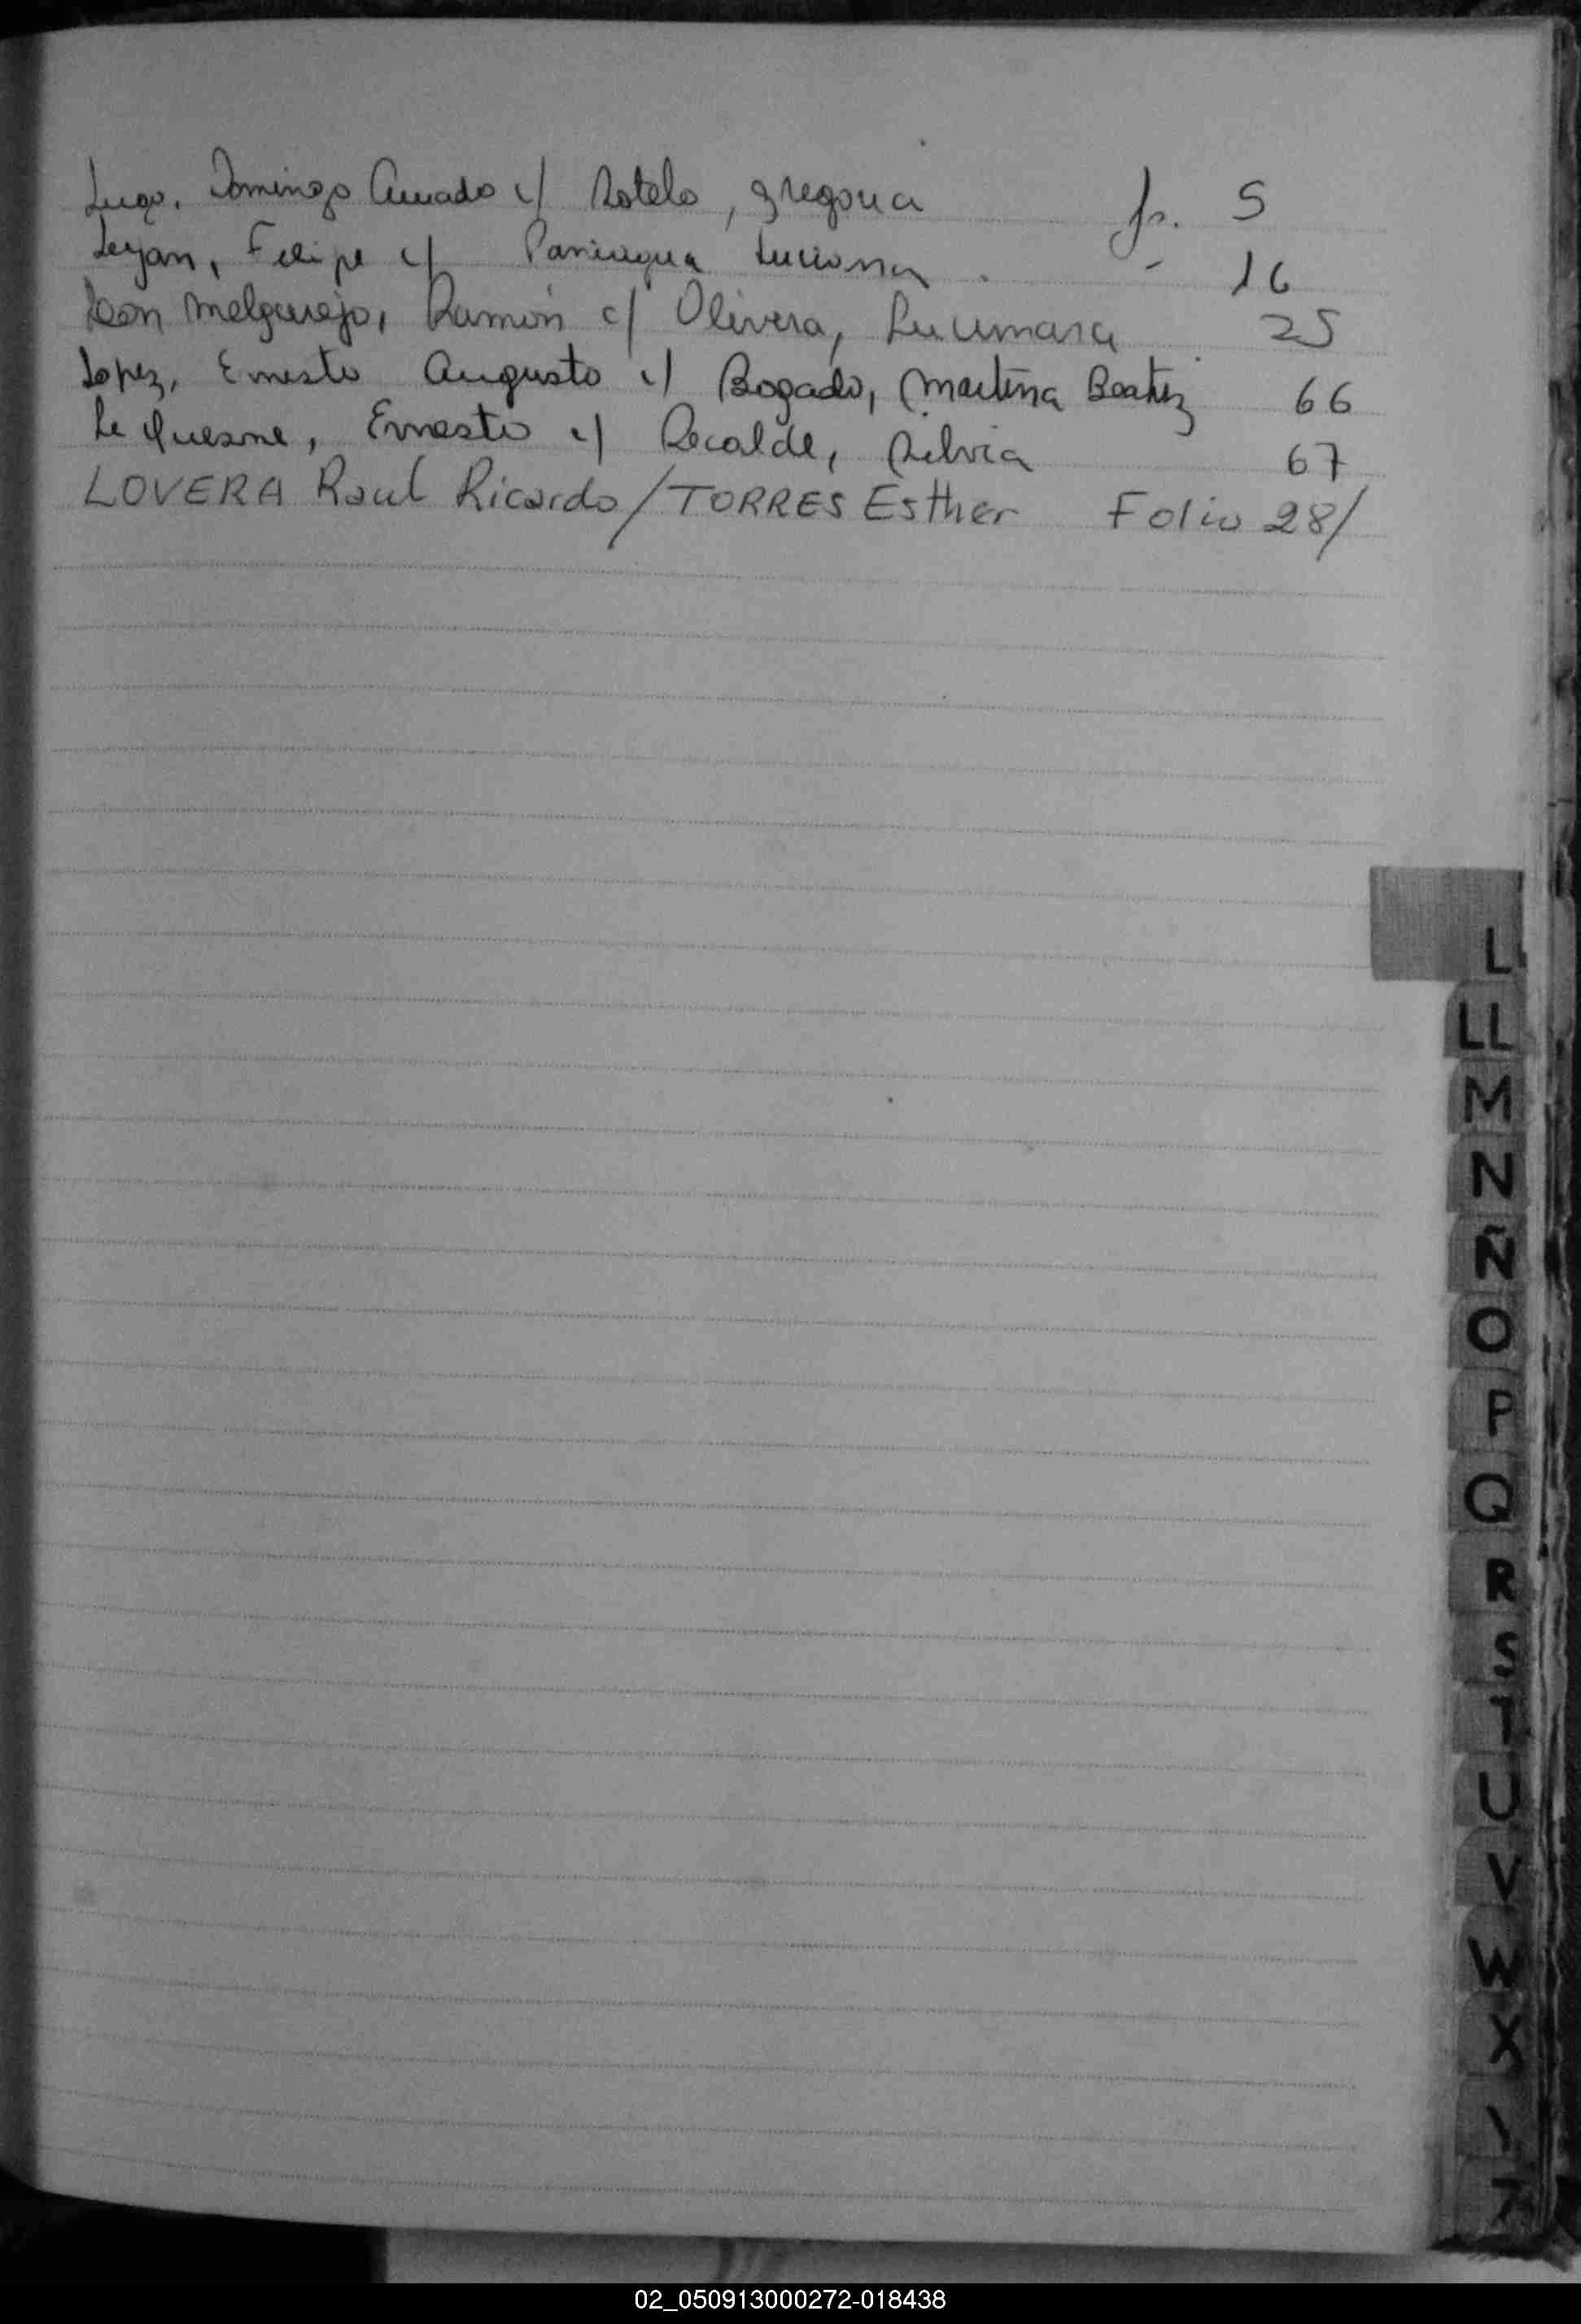 Lugo, Domingo Amado c/ Sotelo, Gregoria fs. 5
Leyan, Felipe c/ Paniagua Luciana - 16
Leon Melgarejo, Ramón c/ Olivera, Lucimara 25
Lopez, Ernesto Augusto c/ Bogado, Martina Beatriz 66
Le Quesne, Ernesto c/ Recalde, Silvia 67
LOVERA Raul Ricardo/TORRES Esther Folio 28/
L
LL
M
N
Ñ
O
P
Q
R
S
T
U
V
W
X
Z
02_050913000272-018438